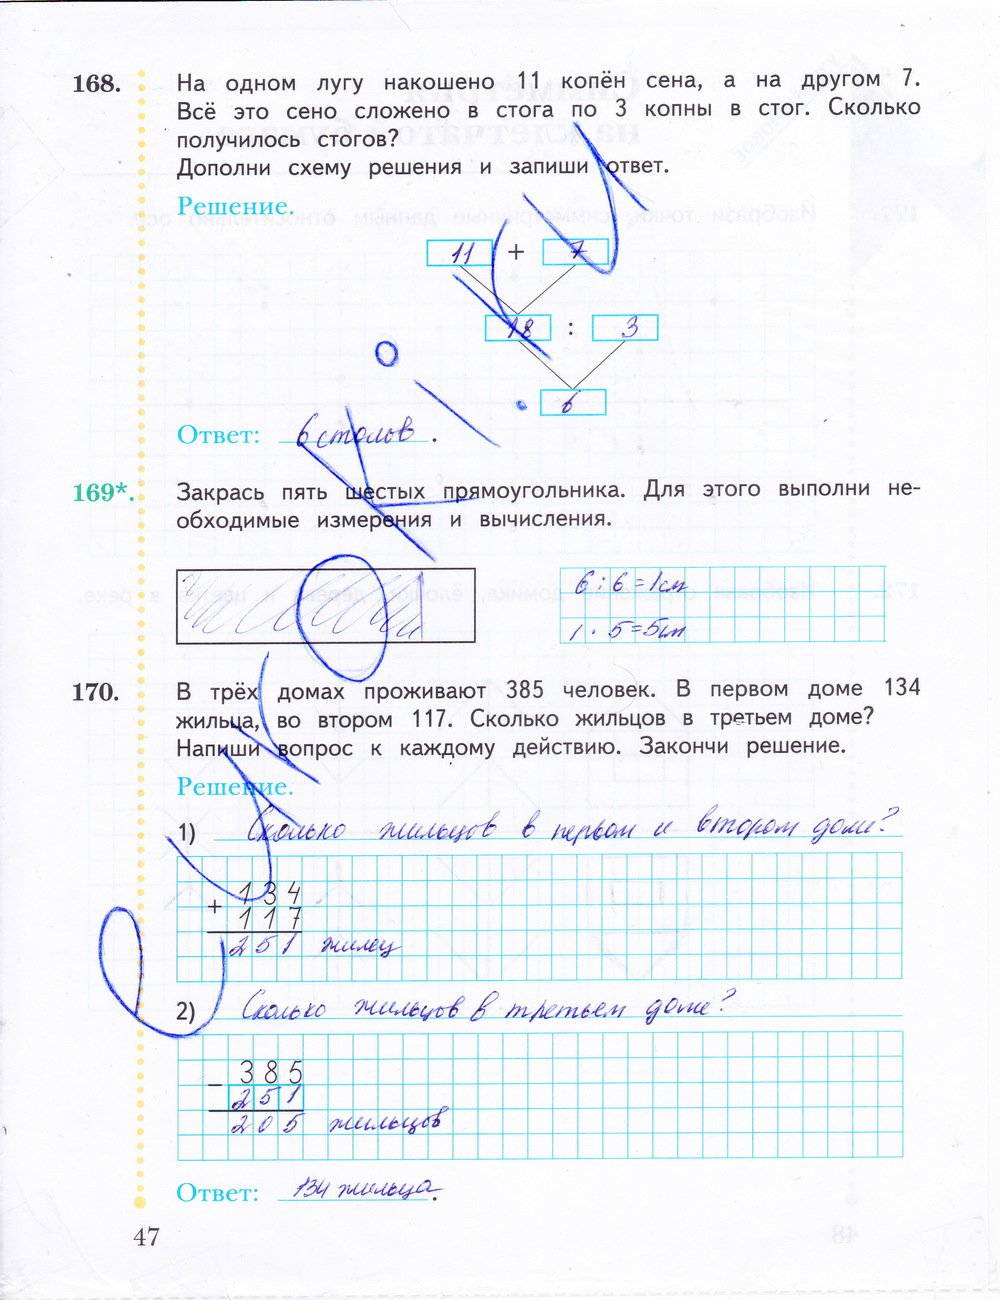 168. На одном лугу накошено 11 копён сена, а на другом 7.
Всё это сено сложено в стога по 3 копны в стог. Сколько
получилось стогов?
Дополни схему решения и запиши ответ.
Решение.
11 + 7
18 : 3
6
Ответ: 6 столов.
169*. Закрась пять шестых прямоугольника. Для этого выполни не-
обходимые измерения и вычисления.
6 : 6 = 1см
1 · 5 = 5см
170. В трёх домах проживают 385 человек. В первом доме 134
жильца, во втором 117. Сколько жильцов в третьем доме?
Напиши вопрос к каждому действию. Закончи решение.
Решение.
1) Сколько жильцов в первом и втором доме?
134
+
117
251 жилец
2) Сколько жильцов в третьем доме?
385
–
251
205 жильцов
Ответ: 134 жильца.
47